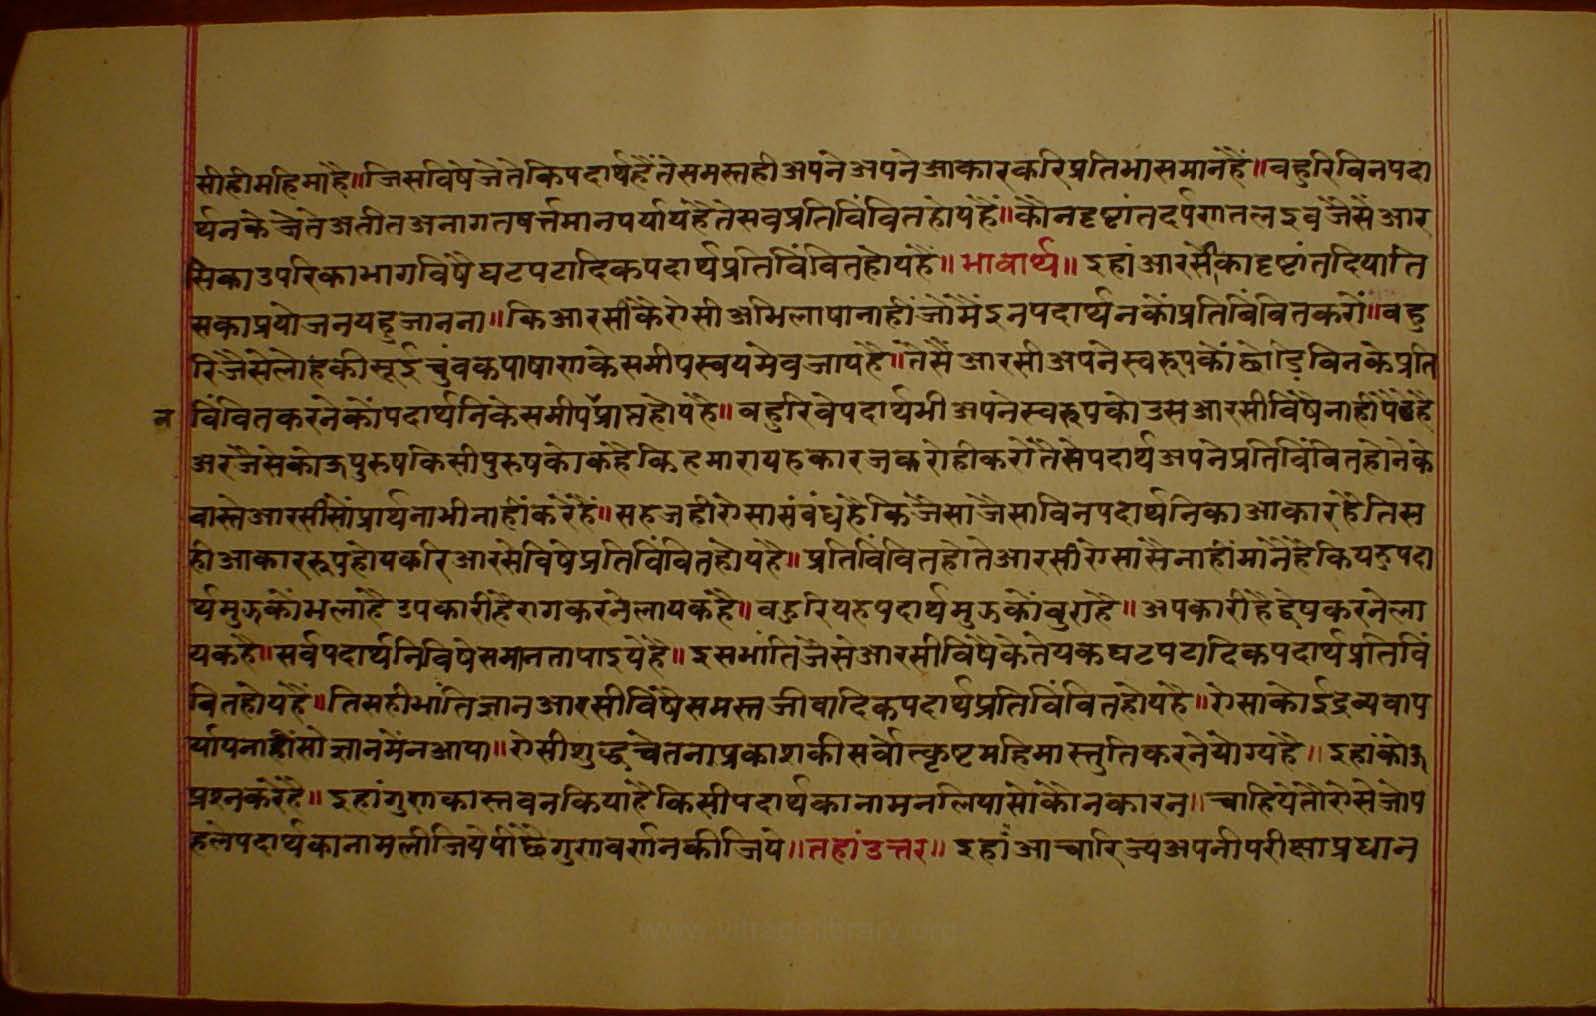 सीहीमहिमाहै॥जिसविषेजेतेकिपदार्थहैंतेसमस्तहीअपनेअपनेआकारकरिप्रतिभासमानेहैं॥वहुरिविनपदा
र्थनकेजेतेअतीतअनागतवर्त्तमानपर्यायहैतेसवप्रतिविंवितहोयहैं॥कौनदृष्टांतदर्पणतलइवजैसैंआर
सिकाउपरिकाभागविंषैघटपटादिकपदार्थप्रतिविंवितहोयहै॥भावार्थ॥इहांआरसीकादृष्टांतदियाति
सकाप्रयोजनयहुजानना॥किआरसीकेऐसीअभिलाषानाहींजोमैंइनपदार्थनकोंप्रतिबिंवितकरों॥वहु
रिजैसेलोहकीसूईचुंवकपाषाणकेसमीपस्वयमेवजायहै॥तैसैंआरसीअपनेस्वरूपकोंछोडिविनकेप्रति
विंवितकरनेकोंपदार्थनिकेसमीपप्राप्तहोयहै॥वहुरिवेपदार्थभीअपनेस्वरूपकोउसआरसीविंषैनाहींपैठेहै
न
अरजैसेकोऊपुरुषकिसीपुरुषकोकहैकिहमारायहकारजकरोहीकरोंतैसेपदार्थअपनेप्रतिविंवितहोनेके
वास्तेआरसीसोंप्रार्थनाभीनाहींकरैंहैं॥सहजहीऐसासंवंधहैकिजैसाजैसाविनपदार्थनिकाआकारहैतिस
हीआकाररूपहोयकरिआरसेविषेप्रतिविंवितहोयहै॥प्रतिविंवितहोतेआरसीऐसांसैनाहींमानैंहैकियहुपदा
र्थमुझकोंभलाहैउपकारीहैरागकरनेलायकहै॥वहुरियहपदार्थमुझकोंवुराहै॥अपकारीहैद्वेषकरनेला
यकहै॥सर्वपदार्थनिविषेसमानतापाइयेहै॥इसभांतिजैसेआरसीविंषैकेतेयकघटपटादिकपदार्थप्रतिविं
वितहोयहैं॥तिसहीभांतिज्ञानआरसीविंषैसमस्तजीवादिकपदार्थप्रतिविंवितहोयहै॥ऐसाकोईद्रव्यवाप
र्यायनाहींसोज्ञानमेंनआया॥ऐसीशुद्धचेतनाप्रकाशकीसर्वोत्कृष्टमहिमास्तुतिकरनेयोग्यहै॥इहांकोऊ
प्रश्नकरेहै॥इहांगुणकास्तवनकियाहैकिसीपदार्थकानामनलियासोकौनकारन॥चाहियेतौऐसेजोप
हलेपदार्थकानामलीजियेपीछैगुणवर्णनकीजिये॥तहांउत्तर॥इहांआचारिज्यअपनीपरीक्षाप्रधान